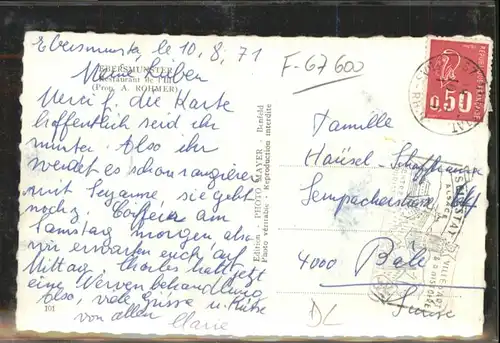 Ebersmunster le 10.8.71
EBERSMUNSTER
Restaurant de l'Ill
(Prop. A. ROHMER)
Meine Lieben
Merci f. die Karte
hoffentlich seid ihr
munter. Also ihr
werdet es schon rangieren
mit Suzanne, sie geht
noch z. Coiffeur am
Samstag morgen also
wir erwarten euch auf
Mittag Charles hatt jetzt
eine Nervenbehandlung
Also, viele Grüsse u. Küsse
von allen Marie
101
Edition - PHOTO MAYER - Benfeld
Photo véritable - Reproduction interdite
F-67600
0,50
Familie
Haüsel-
Sempacherstrasse
4000 Bâle
Suisse
DL
SELESTAT